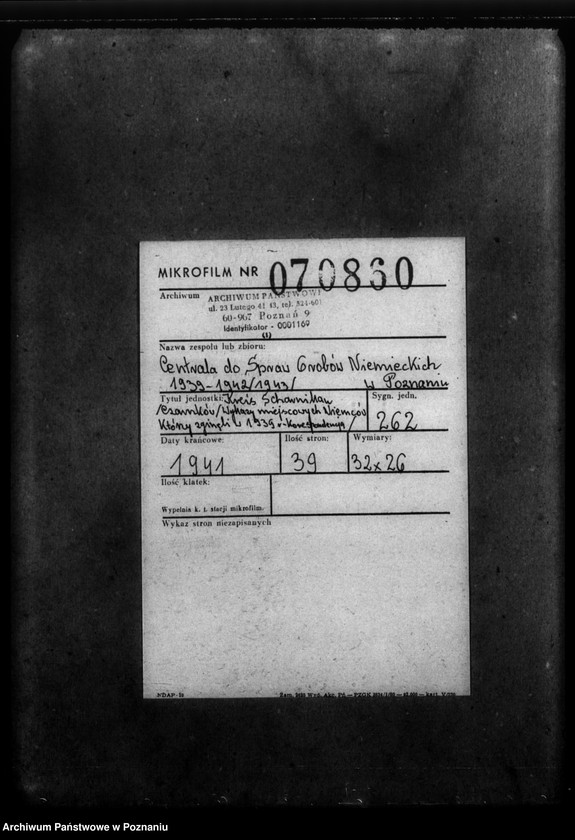 MIKROFILM NR 070860
Archiwum ARCHIWUM PAŃSTWOWE
ul. 23 Lutego 41/43, tel. 524-601
60-967 Poznań 9
Identyfikator - 0001169
(1)
Nazwa zespołu lub zbioru:
Centrala do Spraw Grobów Niemieckich
1939-1942/1943/ w Poznaniu
Tytuł jednostki: Kreis Scharnikau Sygn. jedn.
/Czarnków/Wykazy miejscowych Niemców 262
którzy zginęli w 1939 r.-Korespondencja/
Daty krańcowe: Ilość stron: Wymiary:
1941 39 32x26
Ilość klatek:
Wypełnia k. t. stacji mikrofilm.
Wykaz stron niezapisanych
NDAP-28
Archiwum Państwowe w Poznaniu